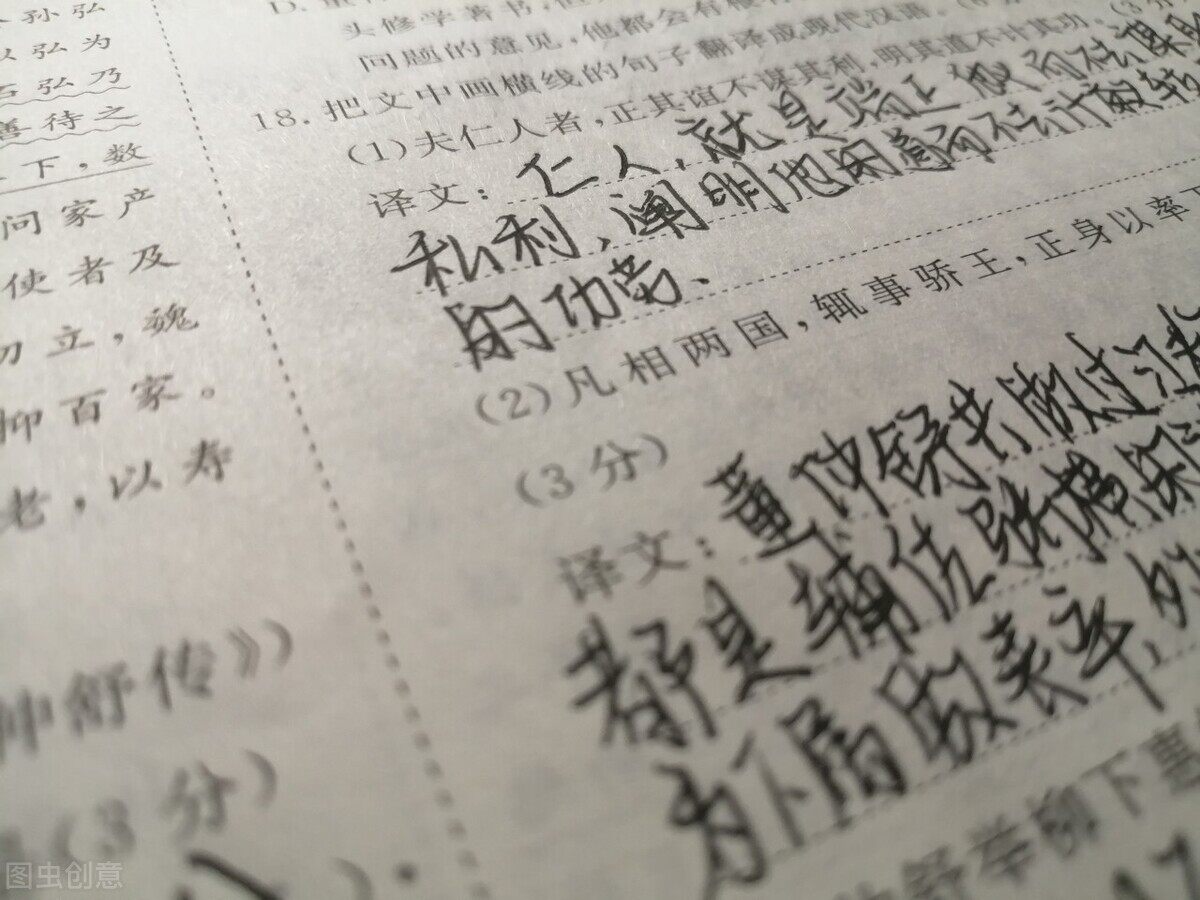 孙弘
以弘为
弘乃
善待之
下，数
问家产
使者及
初立，魏
抑百家。
老，以寿
仲舒传》）
（3分）
头修学著书，
问题的意见，他都会有
18.把文中画横线的句子翻译成现代汉语。
(1)夫仁人者，正其谊不谋其利，明其道不计其功。（3分
译文：仁人，就是端正他 而不去谋取
私利、阐明他的 而不去计较
的功劳、
(2)凡相两国，辄事骄王，正身以率下
(3分)
译文：董仲舒共做过
都是辅佐骄横
为下属做表率，
舒举柳下惠
图虫创意